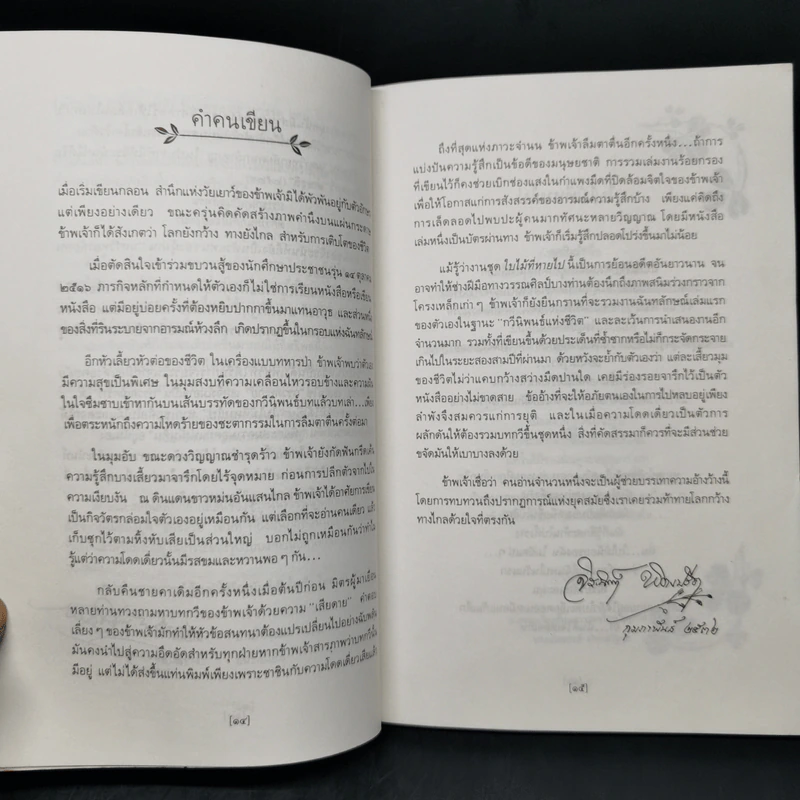 คำคนเขียน
เมื่อเริ่มเขียนกลอน สำนึกแห่งวัยเยาว์ของข้าพเจ้ามิได้พัวพันอยู่กับตัวอักษร
แต่เพียงอย่างเดียว ขณะครุ่นคิดคัดสร้างภาพคำนึงบนแผ่นกระดาษ
ข้าพเจ้าก็ได้สังเกตว่า โลกยังกว้าง ทางยังไกล สำหรับการเติบโตของชีวิต
เมื่อตัดสินใจเข้าร่วมขบวนสู้ของนักศึกษาประชาชนรุ่น ๑๔ ตุลาคม
๒๕๑๖ ภารกิจหลักที่กำหนดให้ตัวเองก็ไม่ใช่การเรียนหนังสือหรือเขียน
หนังสือ แต่มีอยู่บ่อยครั้งที่ต้องหยิบปากกาขึ้นมาแทนอาวุธ และส่วนหนึ่ง
ของสิ่งที่รินระบายจากอารมณ์ห้วงลึก เกิดปรากฏขึ้นในกรอบแห่งฉันทลักษณ์
อีกหัวเลี้ยวหัวต่อของชีวิต ในเครื่องแบบทหารป่า ข้าพเจ้าพบว่าตัวเอง
มีความสุขเป็นพิเศษ ในมุมสงบที่ความเคลื่อนไหวรอบข้างและความนิ่ง
ในใจซึมซาบเข้าหากันบนเส้นบรรทัดของกวีนิพนธ์บทแล้วบทเล่า...เพียง
เพื่อตระหนักถึงความโหดร้ายของชะตากรรมในการลืมตาตื่นครั้งต่อมา
ในมุมอับ ขณะดวงวิญญาณชำรุดร้าว ข้าพเจ้ายังกัดฟันกรีดเค้น
ความรู้สึกบางเสี้ยวมาจารึกโดยไร้จุดหมาย ก่อนการปลีกตัวจากไปใน
ความเงียบงัน ณ ดินแดนขาวหม่นอันแสนไกล ข้าพเจ้าได้อาศัยการเขียน
เป็นกิจวัตรกล่อมใจตัวเองอยู่เหมือนกัน แต่เลือกที่จะอ่านคนเดียว แล้ว
เก็บซุกไว้ตามหิ้งหับเสียเป็นส่วนใหญ่ บอกไม่ถูกเหมือนกันว่าทำไม
รู้แต่ว่าความโดดเดี่ยวนั้นมีรสขมและหวานพอ ๆ กัน...
กลับคืนชายคาเดิมอีกครั้งหนึ่งเมื่อต้นปีก่อน มิตรผู้มาเยือน
หลายท่านทวงถามหาบทกวีของข้าพเจ้าด้วยความ "เสียดาย" คำตอบ
เลี่ยง ๆ ของข้าพเจ้ามักทำให้หัวข้อสนทนาต้องแปรเปลี่ยนไปอย่างฉับพลัน
มันคงนำไปสู่ความอึดอัดสำหรับทุกฝ่ายหากข้าพเจ้าสารภาพว่าบทกวีนั้น
มีอยู่ แต่ไม่ได้ส่งขึ้นแท่นพิมพ์เพียงเพราะชาชินกับความโดดเดี่ยวเสียแล้ว
[๑๔]
ถึงที่สุดแห่งภาวะจำนน ข้าพเจ้าลืมตาตื่นอีกครั้งหนึ่ง...ถ้าการ
แบ่งปันความรู้สึกเป็นข้อดีของมนุษยชาติ การรวมเล่มงานร้อยกรอง
ที่เขียนไว้ก็คงช่วยเบิกช่องแสงในกำแพงมืดที่ปิดล้อมจิตใจของข้าพเจ้า
เพื่อให้โอกาสแก่การสังสรรค์ของอารมณ์ความรู้สึกบ้าง เพียงแค่คิดถึง
การเล็ดลอดไปพบปะผู้คนมากทัศนะหลายวิญญาณ โดยมีหนังสือ
เล่มหนึ่งเป็นบัตรผ่านทาง ข้าพเจ้าก็เริ่มรู้สึกปลอดโปร่งขึ้นมาไม่น้อย
แม้รู้ว่างานชุด ใบไม้ที่หายไป นี้เป็นการย้อนอดีตอันยาวนาน จน
อาจทำให้ช่างฝีมือทางวรรณศิลป์บางท่านต้องนึกถึงภาพสนิมร่วงกราวจาก
โครงเหล็กเก่า ๆ ข้าพเจ้าก็ยังยืนกรานที่จะรวมงานฉันทลักษณ์เล่มแรก
ของตัวเองในฐานะ "กวีนิพนธ์แห่งชีวิต" และละเว้นการนำเสนองานอีก
จำนวนมาก รวมทั้งที่เขียนขึ้นด้วยประเด็นที่ซ้ำซากหรือไม่ก็กระจัดกระจาย
เกินไปในระยะสองสามปีที่ผ่านมา ด้วยหวังจะย้ำกับตัวเองว่า แต่ละเสี้ยวมุม
ของชีวิตไม่ว่าแคบกว้างสว่างมืดปานใด เคยมีร่องรอยจารึกไว้เป็นตัว
หนังสืออย่างไม่ขาดสาย ข้ออ้างที่จะให้อภัยตนเองในการไปหลบอยู่เพียง
ลำพังจึงสมควรแก่การยุติ และในเมื่อความโดดเดี่ยวเป็นตัวการ
ผลักดันให้ต้องรวมบทกวีขึ้นชุดหนึ่ง สิ่งที่คัดสรรมาก็ควรที่จะมีส่วนช่วย
ขจัดมันให้เบาบางลงด้วย
ข้าพเจ้าเชื่อว่า คนอ่านจำนวนหนึ่งจะเป็นผู้ช่วยบรรเทาความอ้างว้างนี้
โดยการทบทวนถึงปรากฏการณ์แห่งยุคสมัยซึ่งเราเคยร่วมท้าทายโลกกว้าง
ทางไกลด้วยใจที่ตรงกัน
กุมภาพันธ์ ๒๕๓๒
[๑๕]